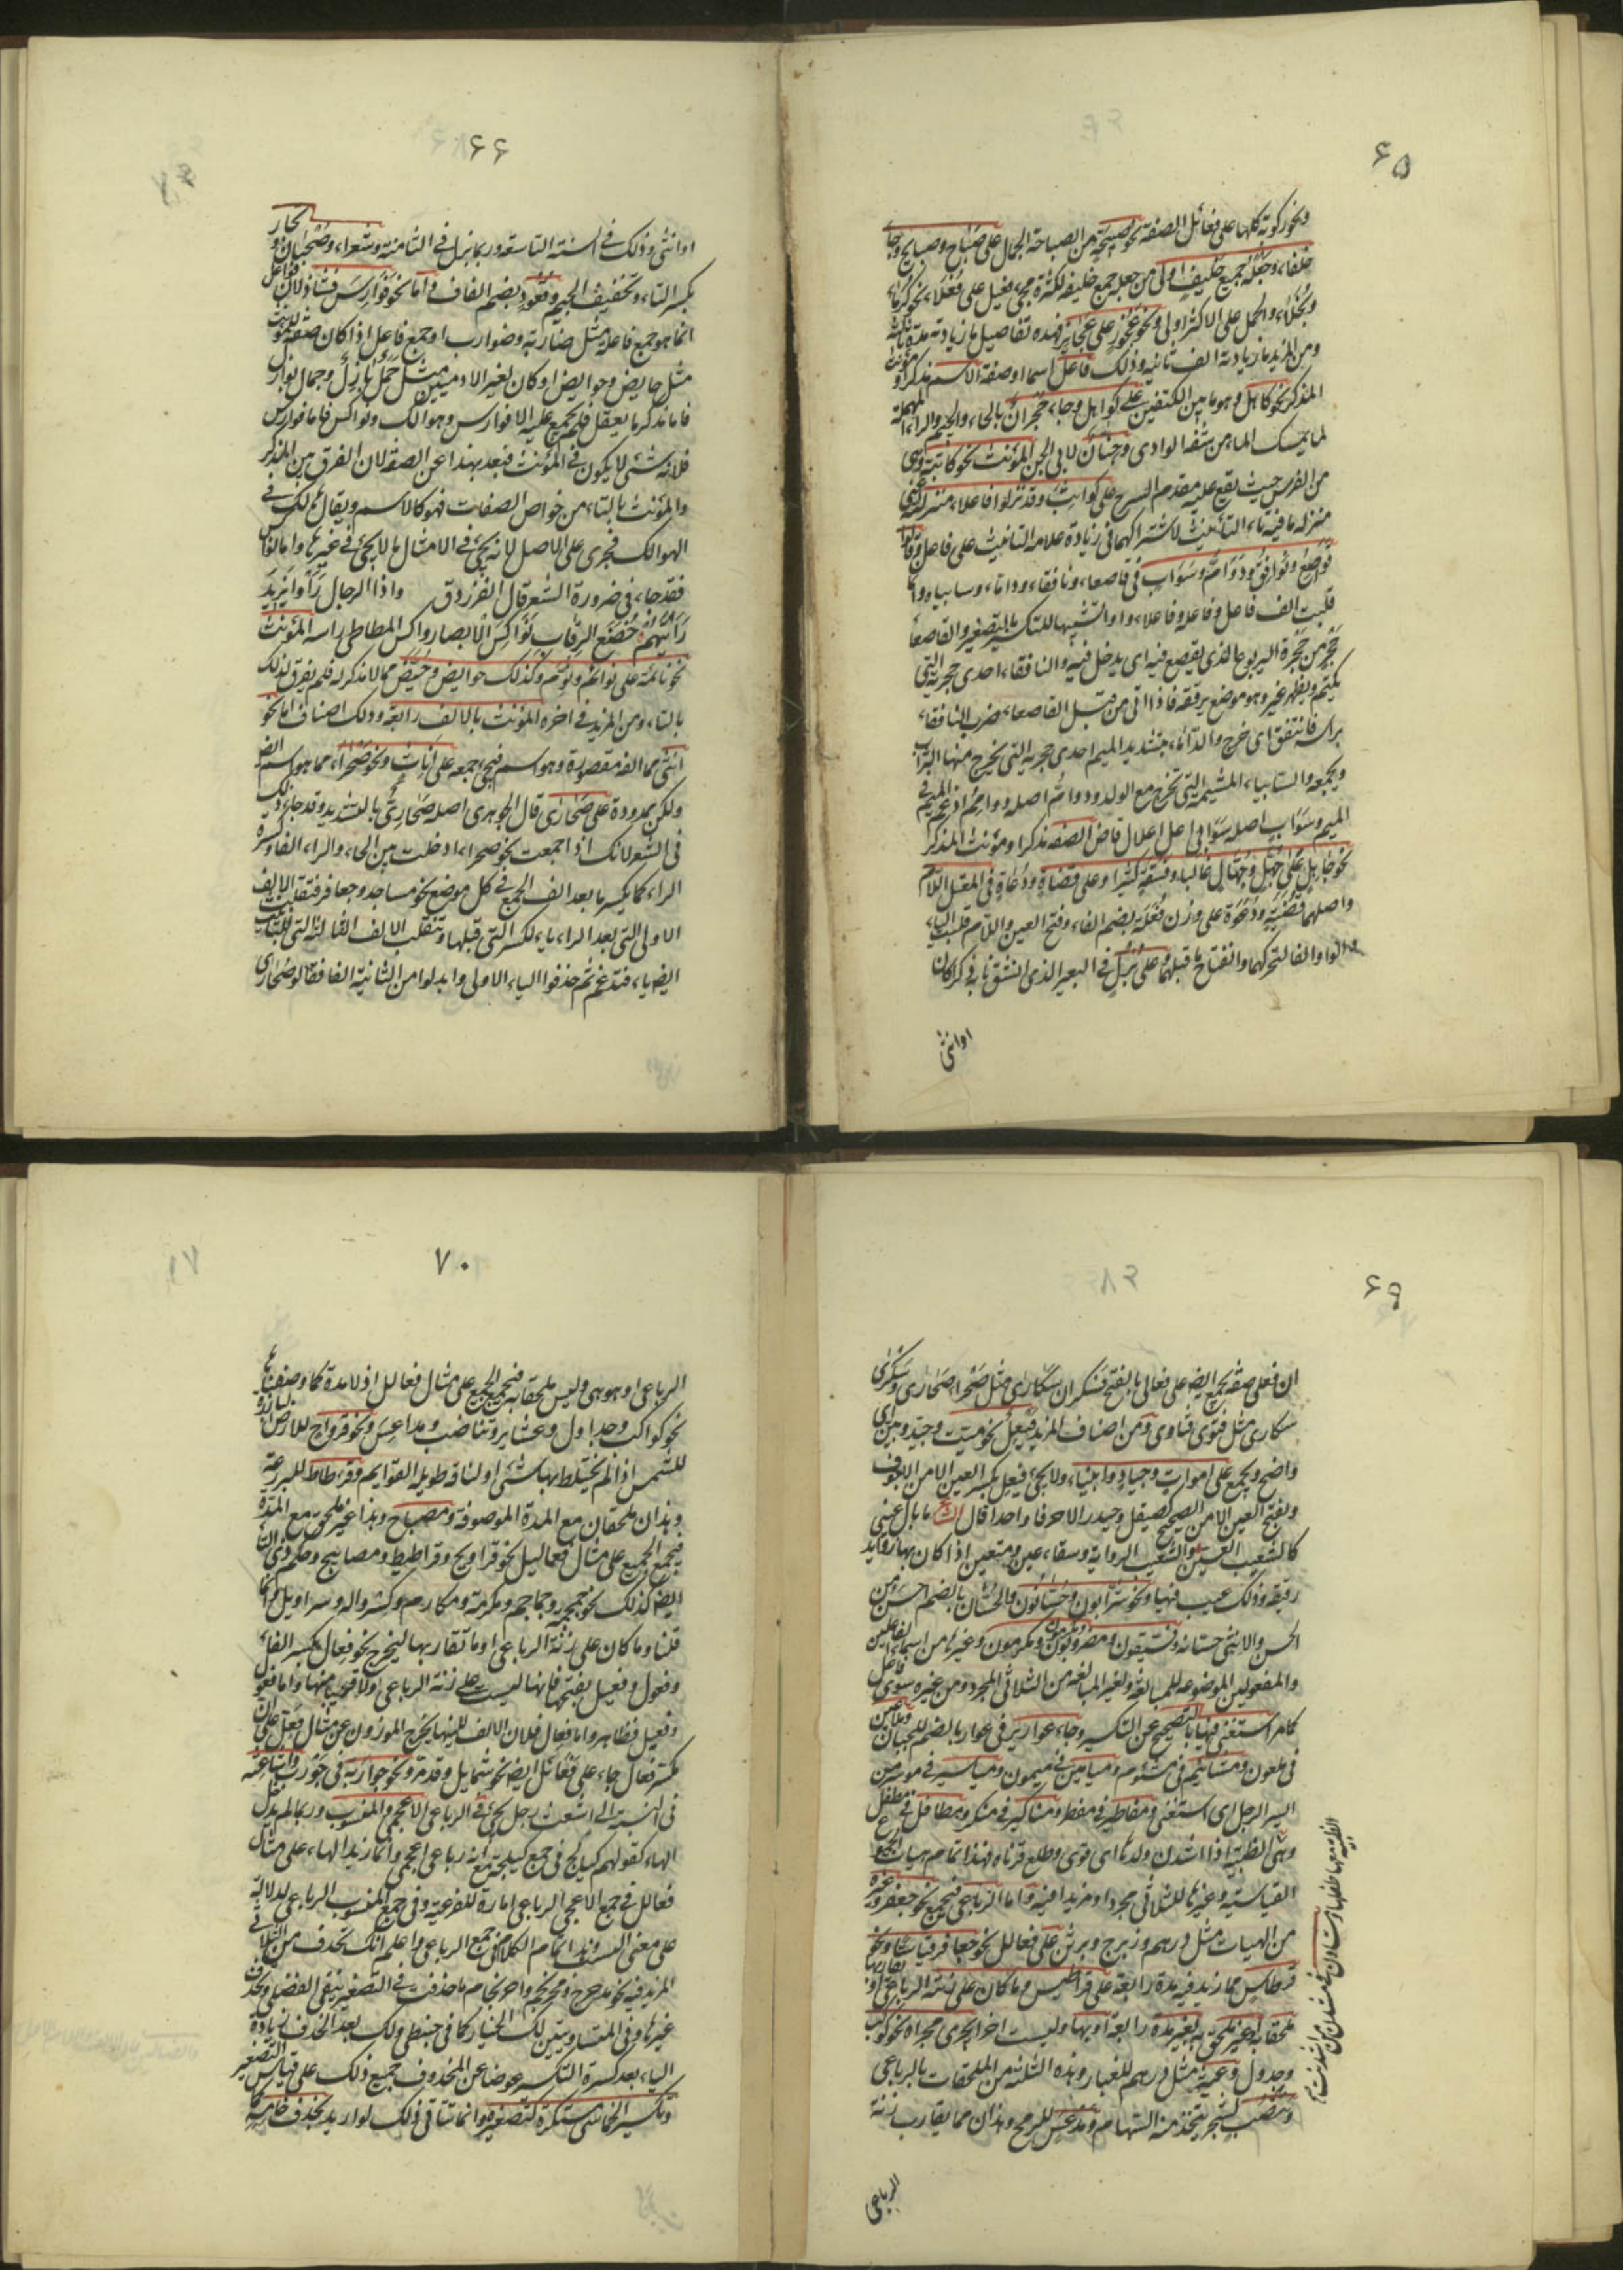 ۶۵
ونحو ركوبة كلها على فعائل الصفة نحو صبيحة من الصباحة الجمال على صباح وصبايح وجاء
خلفاء وجعله جمع خليف اولى من جعله جمع خليفة لكثرة مجئ فعيل على فعلاء نحو كرماء
وبخلاء والحمل على الاكثر اولى ونحو عجوز على عجايز فهذه تفاصيل ما زيادته مدة ثالثة
ومن المزيد ما زيادته الف ثانية وذلك فاعل اسما وصفة الاسم مذكرا ومؤنث
المذكر نحو كاهل وهو ما بين الكتفين على كواهل وجاء حجران بالحاء والجيم والراء المهملة
لما يمسك الماء من شفة الوادى وجنان لابى الجن المؤنث نحو كاثبة وهى
من الفرس حيث يقع عليه مقدم السرج على كواثب وقد نزلوا فاعلاء منزلته يعنى
منزلة ما فيه تاء التأنيث لاشتراكهما فى زيادة علامة التانيث على فاعل وقالوا
قواصع ونوافق ودوام وسواب فى قاصعاء ونافقاء وداماء وسابياء
قلبت الف فاعل وفاعلة وفاعلاء واوا لتشبيهها للتكسير بالتصغير والقاصعاء
جحر من جحرة اليربوع الذى يقصع فيه اى يدخل فيه والنافقاء احدى جحرته التى
يكتمها ويظهر غيره وهو موضع يرققه فاذا اتى من قبل القاصعاء ضرب النافقاء
براسه فانتفق اى خرج والداماء بتشديد الميم احدى جحرته التى يخرج منها التراب
ويجمعه والسابياء المشيمة التى تخرج مع الولد ودوام اصله دوامم ادغم الميم فى
الميم وسواب اصله سوابى اعل اعلال قاض الصفة مذكرا ومؤنث المذكر
نحو جاهل على جهل وجهال غالبا وفسقة كثيرا وعلى قضاة ودعاة فى المعتل اللام
واصلهما قضية ودعوة على وزن فعلة بضم الفاء وفتح العين واللام قلبت الياء
والواو الفا لتحركهما وانفتاح ما قبلهما وعلى بزل فى البعير الذى انشق نابه ذكرا كان
او انثى
۶۶
او انثى وذلك فى السنة التاسعة وربما بزل فى الثامنة وشعراء وصحبان وتجار
بكسر التاء وتخفيف الجيم وقعود بضم القاف واما نحو فوارس فشاذ لان فواعل
انما هو جمع فاعلة مثل ضاربة وضوارب او جمع فاعل اذا كان صفة لمؤنث
مثل حايض وحوايض او كان لغير الادميين مثل جمل بازل وجمال بوازل
فاما مذكر ما يعقل فلم يجمع عليه الا فوارس وهوالك ونواكس فاما فوارس
فلانه شئ لا يكون فى المؤنث فبعد بهذا عن الصفة لان الفرق بين المذكر
والمؤنث بالتاء من خواص الصفات فهو كالاسم ويقال هالك فى
الهوالك فجرى على الاصل لانه يجئ فى الامثال ما لا يجئ فى غيرها واما نواكس
فقد جاء فى ضرورة الشعر قال الفرزدق واذا الرجال رأوا يزيد
رأيتهم خضع الرقاب نواكس الابصار والنواكس المطاطى راسه المؤنث
نحو نائمة على نوائم ونوم وكذلك حوايض وحيض مما لا مذكر له فلم يفرق لذلك
بالتاء ومن المزيد فى اخره المؤنث بالالف رابعة وذلك اصناف اما نحو
انثى مما الفه مقصورة وهو اسم فيجئ جمعه على اناث ونحو صحراء مما هو اسم ايض
ولكن ممدودة على صحارى قال الجوهرى اصله صحارى بالتشديد وقد جاء ذلك
فى الشعر لانك اذا جمعت نحو صحراء ادخلت بين الحاء والراء الفا وكسرة
الراء كما يكسر ما بعد الف الجمع فى كل موضع نحو مساجد وجعافر فتقلب الالف
الاولى التى بعد الراء ياء للكسرة التى قبلها وتنقلب الالف الثانية التى للتانيث
ايضا ياء فتدغم ثم حذفوا الياء الاولى وابدلوا من الثانية الفا فقالوا صحارى
۶۹
ان فعلى صفة يجمع ايضا على فعالى بالفتح فسكران سكارى مثل صحراء صحارى وسكرى
سكارى مثل فتوى فتاوى ومن اصناف المزيد فيعل نحو ميت وجيد وبين اى
واضح ويجمع على اموات وجياد وابيناء ولا يجئ فيعل بكسر العين الا من الاجوف
وبفتح العين الا من الصحيح كصيقل وحيدر الا حرفا واحدا قال الشاعر ما بال عينى
كالشعيب العين والشعيب الراوية وسقاء عين ومتعين اذا كان بها دوائر
رقيقة وذلك عيب فيها ونحو شرابون وحسانون والحسان بالضم احسن من
الحسن والانثى حسانة وفسيقون ومضروبون ومكرمون وغيرها من اسماء الفاعلين
والمفعولين الموضوعة للمبالغة ولغير المبالغة من الثلاثى المجرد ومن غيره سوى فاعل
كامر استغنى فيها بالتصحيح عن التكسير وجاء عواوير فى عوار بالضم للجبان وملاعين
فى ملعون ومشائيم فى مشئوم وميامين فى ميمون ومياسير فى موسر من
اليسر الرجل اى استغنى ومفاطير فى مفطر ومناكير فى منكر ومطافل فى مطفل
وهى الظبية اذا اشدن ولدها اى قوى وطلع قرناه فهذا تمام هيات الجموع
القياسية وغيرها للثلاثى مجردا ومزيدا فيه واما الرباعى فيجمع نحو جعفر وغيره
من الهيات مثل درهم وزبرج وبرثن على فعالل نحو جعافر قياسا ونحو
قرطاس مما زيد فيه مدة رابعة على قراطيس وما كان على زنة الرباعى او تقاربها
ملحقا به او غير ملحق به بغير مدة رابعة او بها وليست اخرا يجرى مجراه نحو كوكب
وجدول وعثير مثل درهم للغبار وهذه الثلثة من الملحقات بالرباعى
وتنضب لشجر يتخذ منه السهام ومدعس للرمح وهذان مما يقارب زنة
الرباعى
۷۰
الرباعى او هو هى وليس ملحقا به فيجمع الجميع على مثال فعالل اذ لا مدة كما وصفناها
نحو كواكب وجداول وعثاير وتناضب ومداعس ونحو قرواح للارض البارزة
للشمس اذا لم يختلط بها شئ او لناقة طويلة القوايم وقرطاط للبردعة
وهذان ملحقان مع المدة الموصوفة ومصباح وهذا غير ملحق مع المدة
فيجمع الجميع على مثال فعاليل نحو قراويح وقراطيط ومصابيح وحكم ذى التاء
ايضا كذلك نحو جمجمة وجماجم ومكرمة ومكارم وسروالة وسراويل وانما
قلنا وما كان على زنة الرباعى او ما تقاربها ليخرج نحو فعال بكسر الفاء
وفعول وفعيل بفتحها فانها ليست على زنة الرباعى ولا قريبا منها واما فعول
وفعيل فظاهر واما فعال فلان الالف لينها يخرج الموزون عن مثال فعل على ان
بكسر فعال جاء على فعائل ايضا نحو شمايل وقد مر ونحو جواربة فى جورب واشاعثة
فى النسبة الى اشعث رجل يجئ فى الرباعى الاعجمى والمنسوب وربما لم يدخل
الهاء كقولهم كيالج فى جمع كيلجة مع انه رباعى اعجمى وانما زيد الهاء على مثال
فعالل فى جمع الاعجمى الرباعى امارة للفرعية وفى جمع المنسوب الرباعى لدلالة
على معنى النسب وهذا تمام الكلام فى جمع الرباعى واعلم انك تحذف من الثلاثى
المزيد فيه نحو مدحرج ومحرنجم واحرنجام ما حذفت فى التصغير يبقى الفضلى ويحذف
غيرها وفى المتساويتين لك الخيار كما فى حبنطى ولك بعد الحذف زيادة
الياء بعد كسرة التكسير عوضا عن المحذوف جميع ذلك على قياس التصغير
وتكسير الخماسى مستكره كتصغيره وانما يتاتى ذلك لو اريد بحذف خامسه